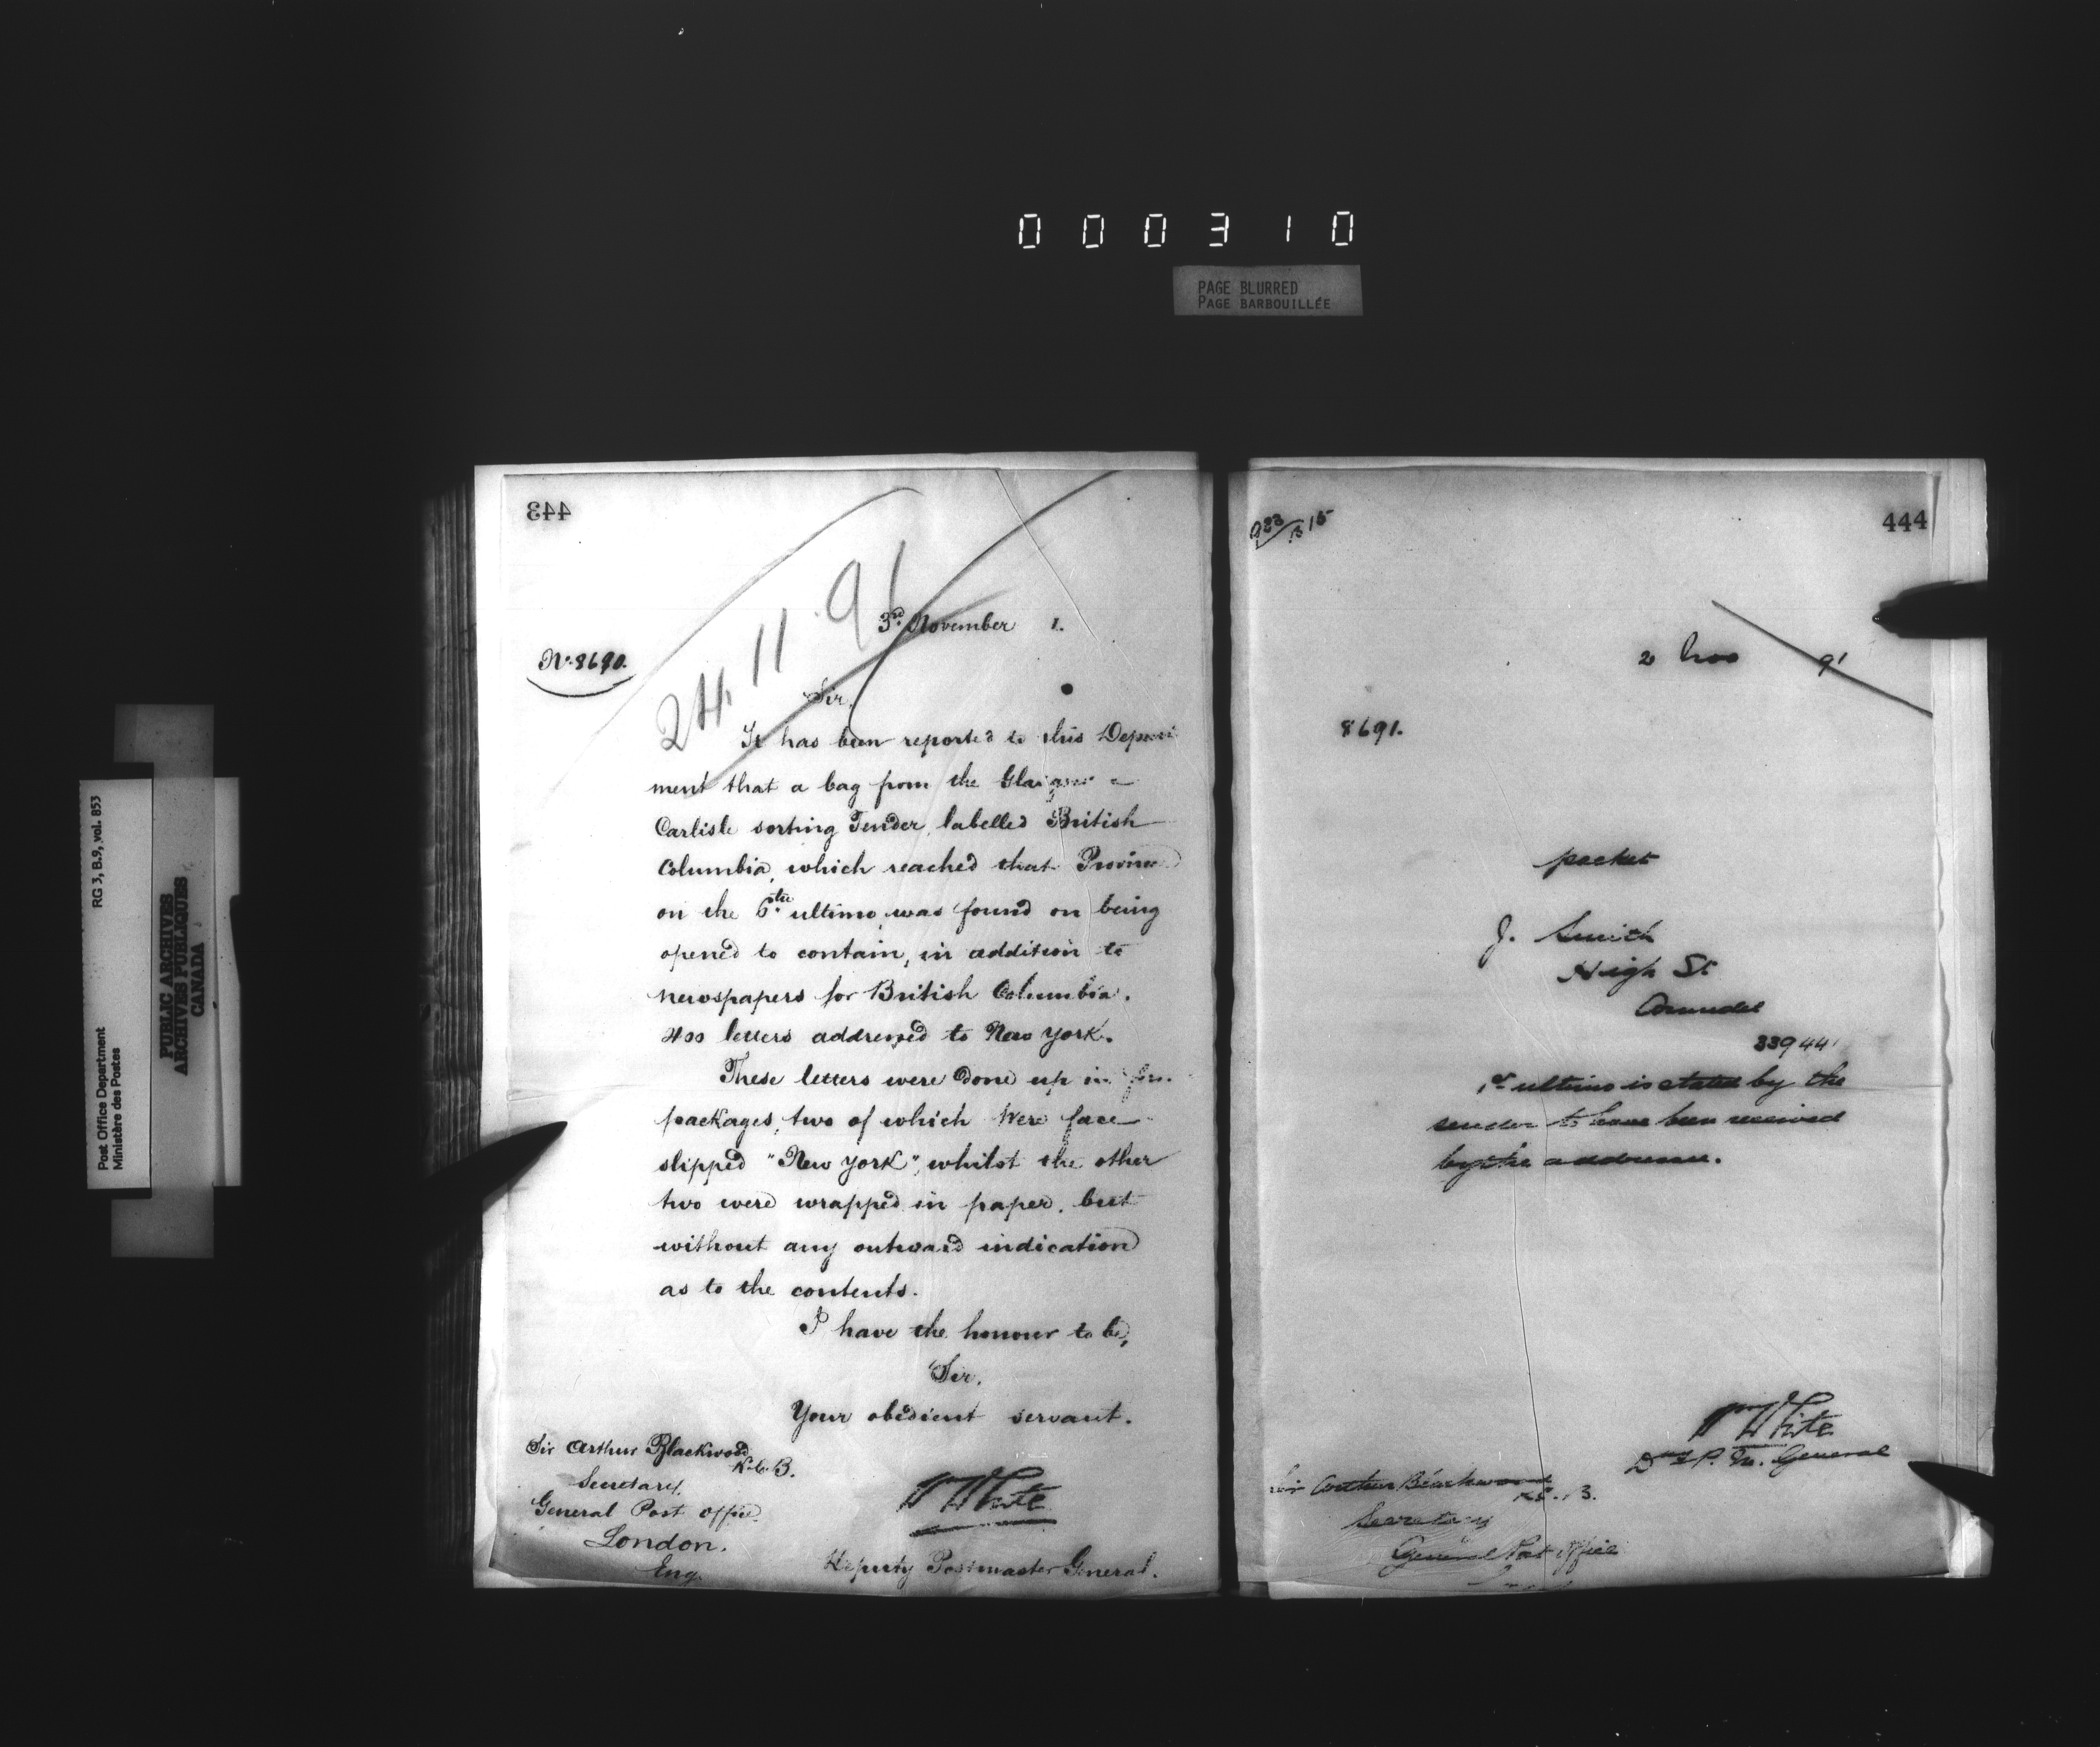 000310
PAGE BLURRED
PAGE BARBOUILLÉE
Post Office Department
Ministère des Postes
RG 3, B.9, vol. 853
PUBLIC ARCHIVES
ARCHIVES PUBLIQUES
CANADA
443
24.11.91
3rd. November 1.
No. 8690.
Sir,
It has been reported to this Depart
ment that a bag from the Glasgow
Carlisle sorting Tender, labelled British
Columbia, which reached that Province
on the 6th. ultimo, was found on being
opened to contain, in addition to
newspapers for British Columbia.
400 letters addressed to New York.
These letters were done up in
packages, two of which were face
slipped "New York", whilst the other
two were wrapped in paper, but
without any outward indication
as to the contents.
I have the honour to be,
Sir,
Your obedient servant.
Sir Arthur Blackwood
K.C.B.
Secretary.
General Post Office.
London.
Eng.
W White
Deputy Postmaster General.
444
2 Nov 91
8691.
packet
J. Smith
High St
Arundel
33944
1st ultimo is stated by the
sender to have been received
by the addressee.
Wm White
Dy P. M. General
Sir Arthur Blackwood
K.C.B.
Secretary
General Post Office